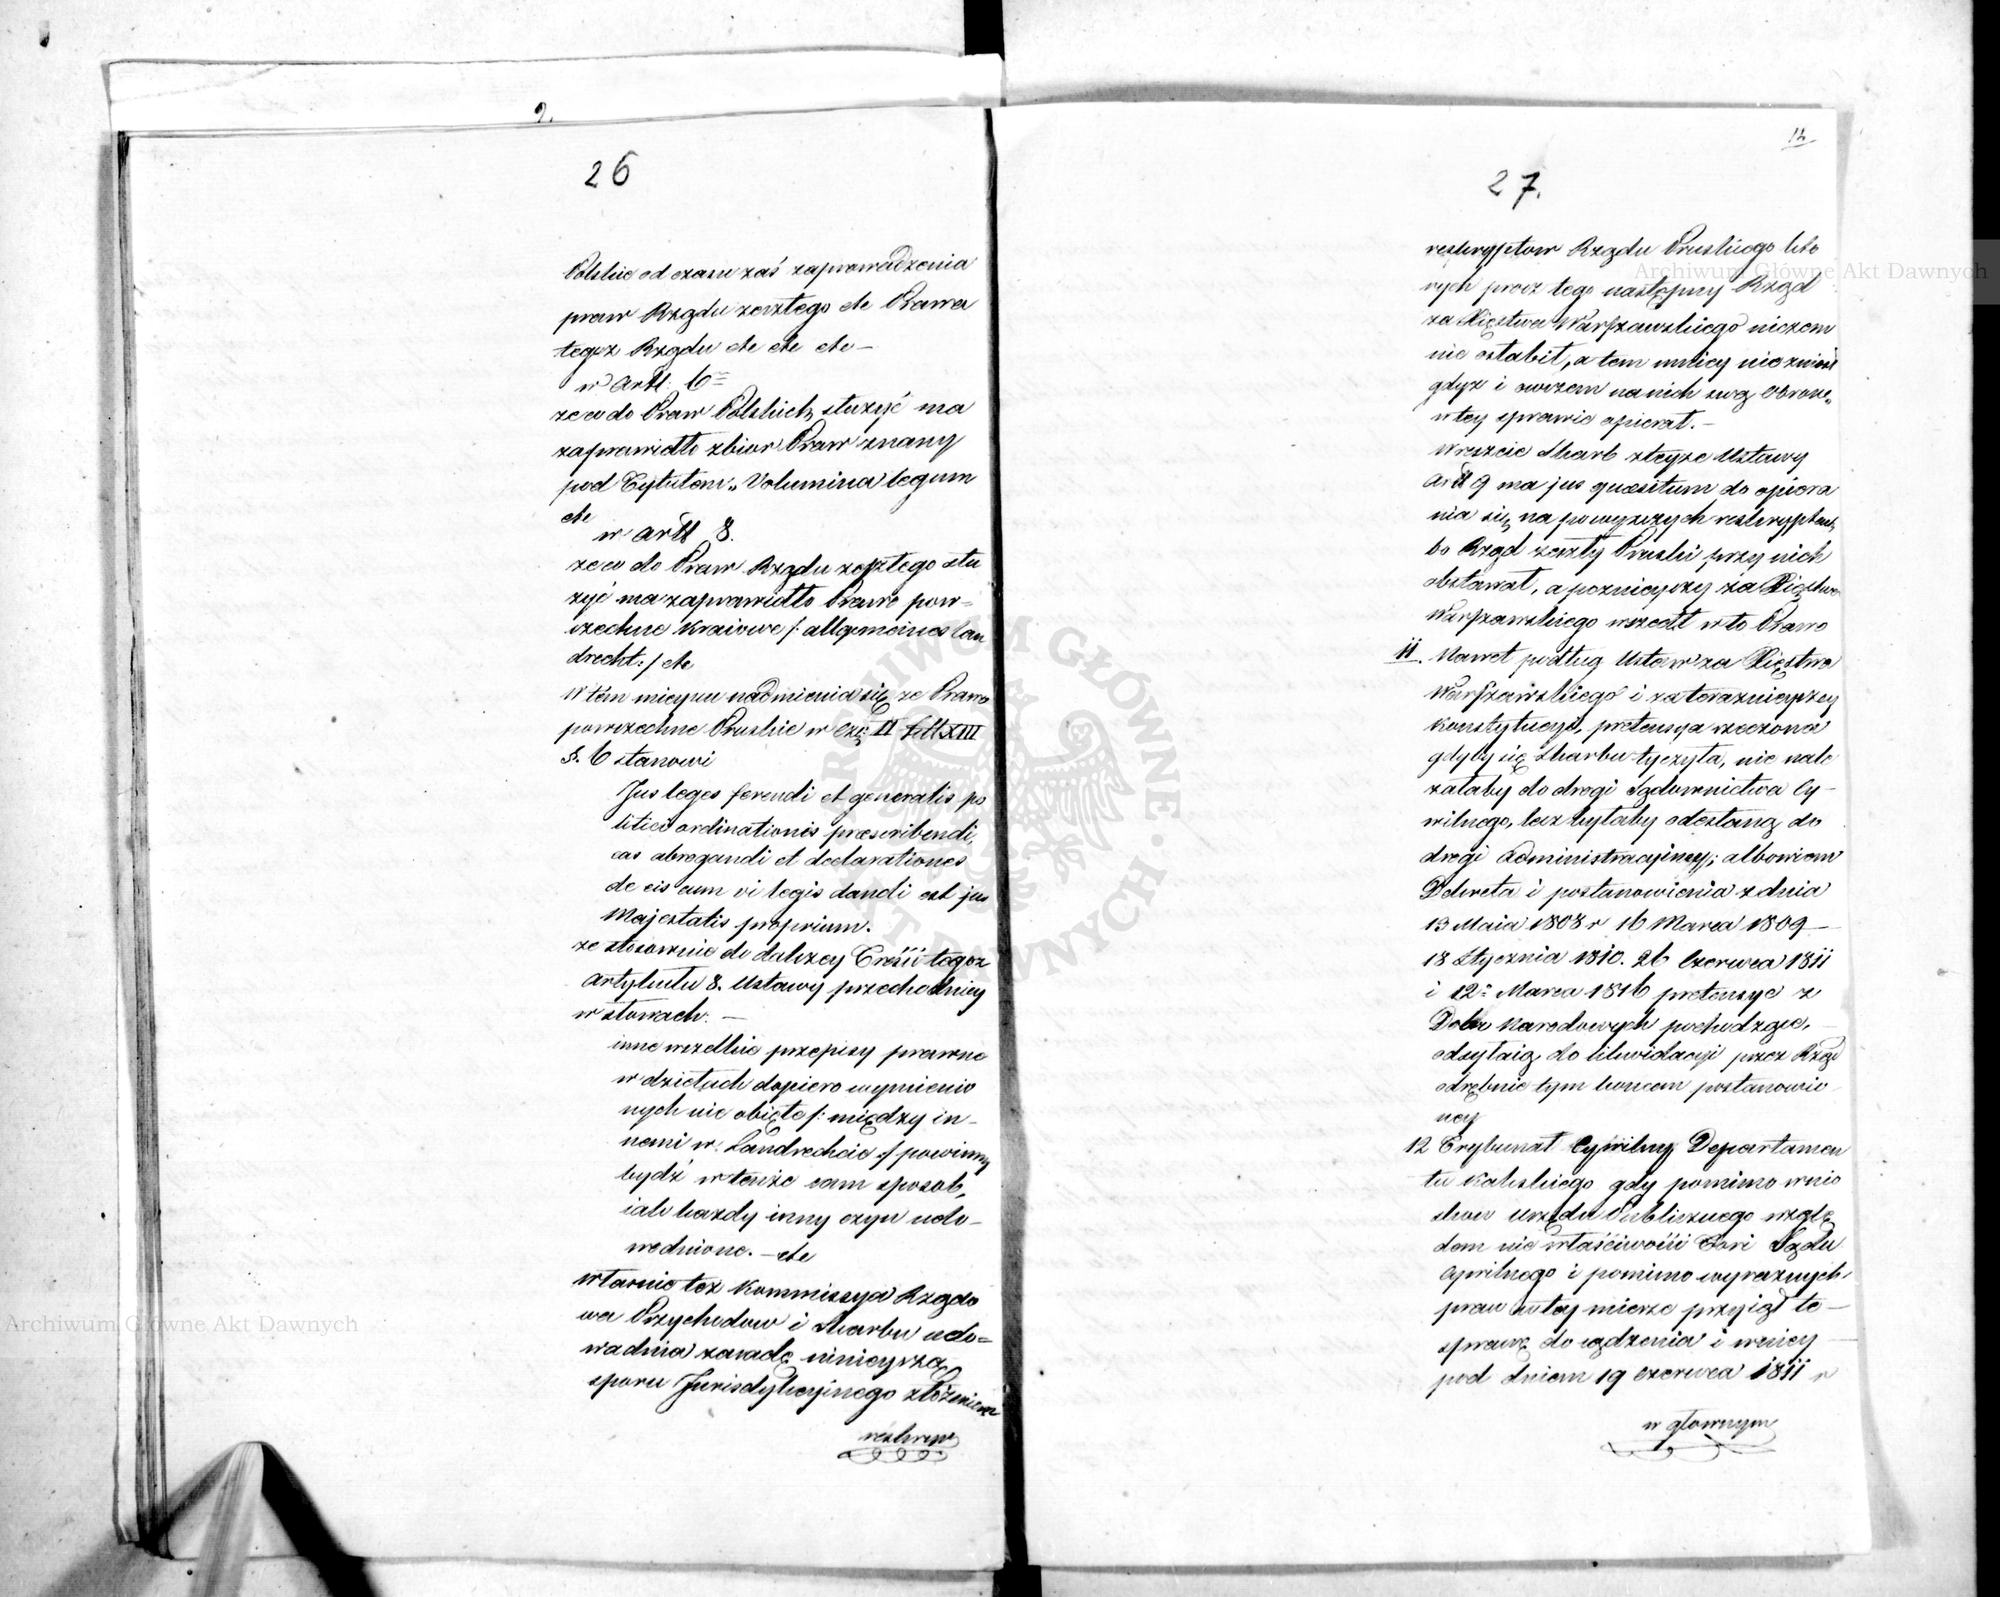 9.
26
Polskie od czasu zaś zaprowadzenia
praw Rządu zeszłego etc Prawa
tegoż Rządu etc etc etc —
w artt: 6
że co do Praw Polskich, służyć ma
za prawidło zbior Praw znany
pod Tytułem „Volumina legum
etc
w artt 8.
że co do Praw Rządu zeszłego słu
żyć ma za prawidło Prawo pow=
szechne Kraiowe /: allgemeines Lan
drecht :/ etc
W tém mieyscu nadmienia się, że Prawo
powszechne Pruskie w Czę: II Titt XIII
§. 6 stanowi
Jus leges ferendi et generalis po
litici ordinationis præscribendi,
eas abrogandi et declarationes
de eis cum vi legis dandi est jus
Majestatis proprium.
że stosownie do dalszey Treści tegoż
Artykułu 8. Ustawy przechodniey
w słowach: —
inne wszelkie przepisy prawne
w dziełach dopiero wymienio
nych nie obięte /: między in-
nemi w Landrechcie :/ powinny
bydź w tenże sam sposób,
iak każdy inny czyn udo-
wodnione. — etc
własnie też Kommissya Rządo
wa Przychodow i Skarbu udo=
wadnia zasadę ninieyszą
sporu Jurisdykcyinego złożeniem
reskryp
12
27.
reskryptow Rządu Pruskiego któ
rych przez tego następny Rząd
za Xięstwa Warszawskiego niczem
nie osłabił, a tem mniey nie zniósł
gdyż i owszem na nich swą Obronę
w tey sprawie opierał. —
Wreszcie Skarb z teyże Ustawy
Artt 9 ma jus quæsitum do opiera
nia się, na powyższych reskryptach,
bo Rząd zeszły Pruski przy nich
obstawał, a poznieyszy za Xięstwa
Warszawskiego wszedł w to Prawo
11. Nawet podług Ustaw za Xięstwa
Warszawskiego i za teraznieyszey
Konstytucyi, pretensya rzeczona
gdyby się Skarbu tyczyła, nie nale
żałaby do drogi Sądownictwa Cy-
wilnego, lecz byłaby odesłaną do
drogi Administracyiney; albowiem
Dekreta i postanowienia z dnia
13 Maia 1808 r 16 Marca 1809 —
18 Stycznia 1810. 26 Czerwca 1811
i 12º Marca 1816 pretensye z
Dobr Narodowych pochodzące,
odsyłaią do likwidacyi przez Rząd
odrębnie tym koncem postanowio
ney
12 Trybunał Cywilny Departamen
tu Kaliskiego gdy pomimo wnio
skow Urzędu Publicznego wzglę
dem nie właściwości Fori Sądu
Cywilnego i pomimo wyraznych
praw w tey mierze przyiął tę —
sprawę do sądzenia i w niey —
pod dniem 19 Czerwca 1811 r
w głownym
Archiwum Główne Akt Dawnych
Archiwum Główne Akt Dawnych
ARCHIWUM GŁÓWNE · AKT DAWNYCH ·